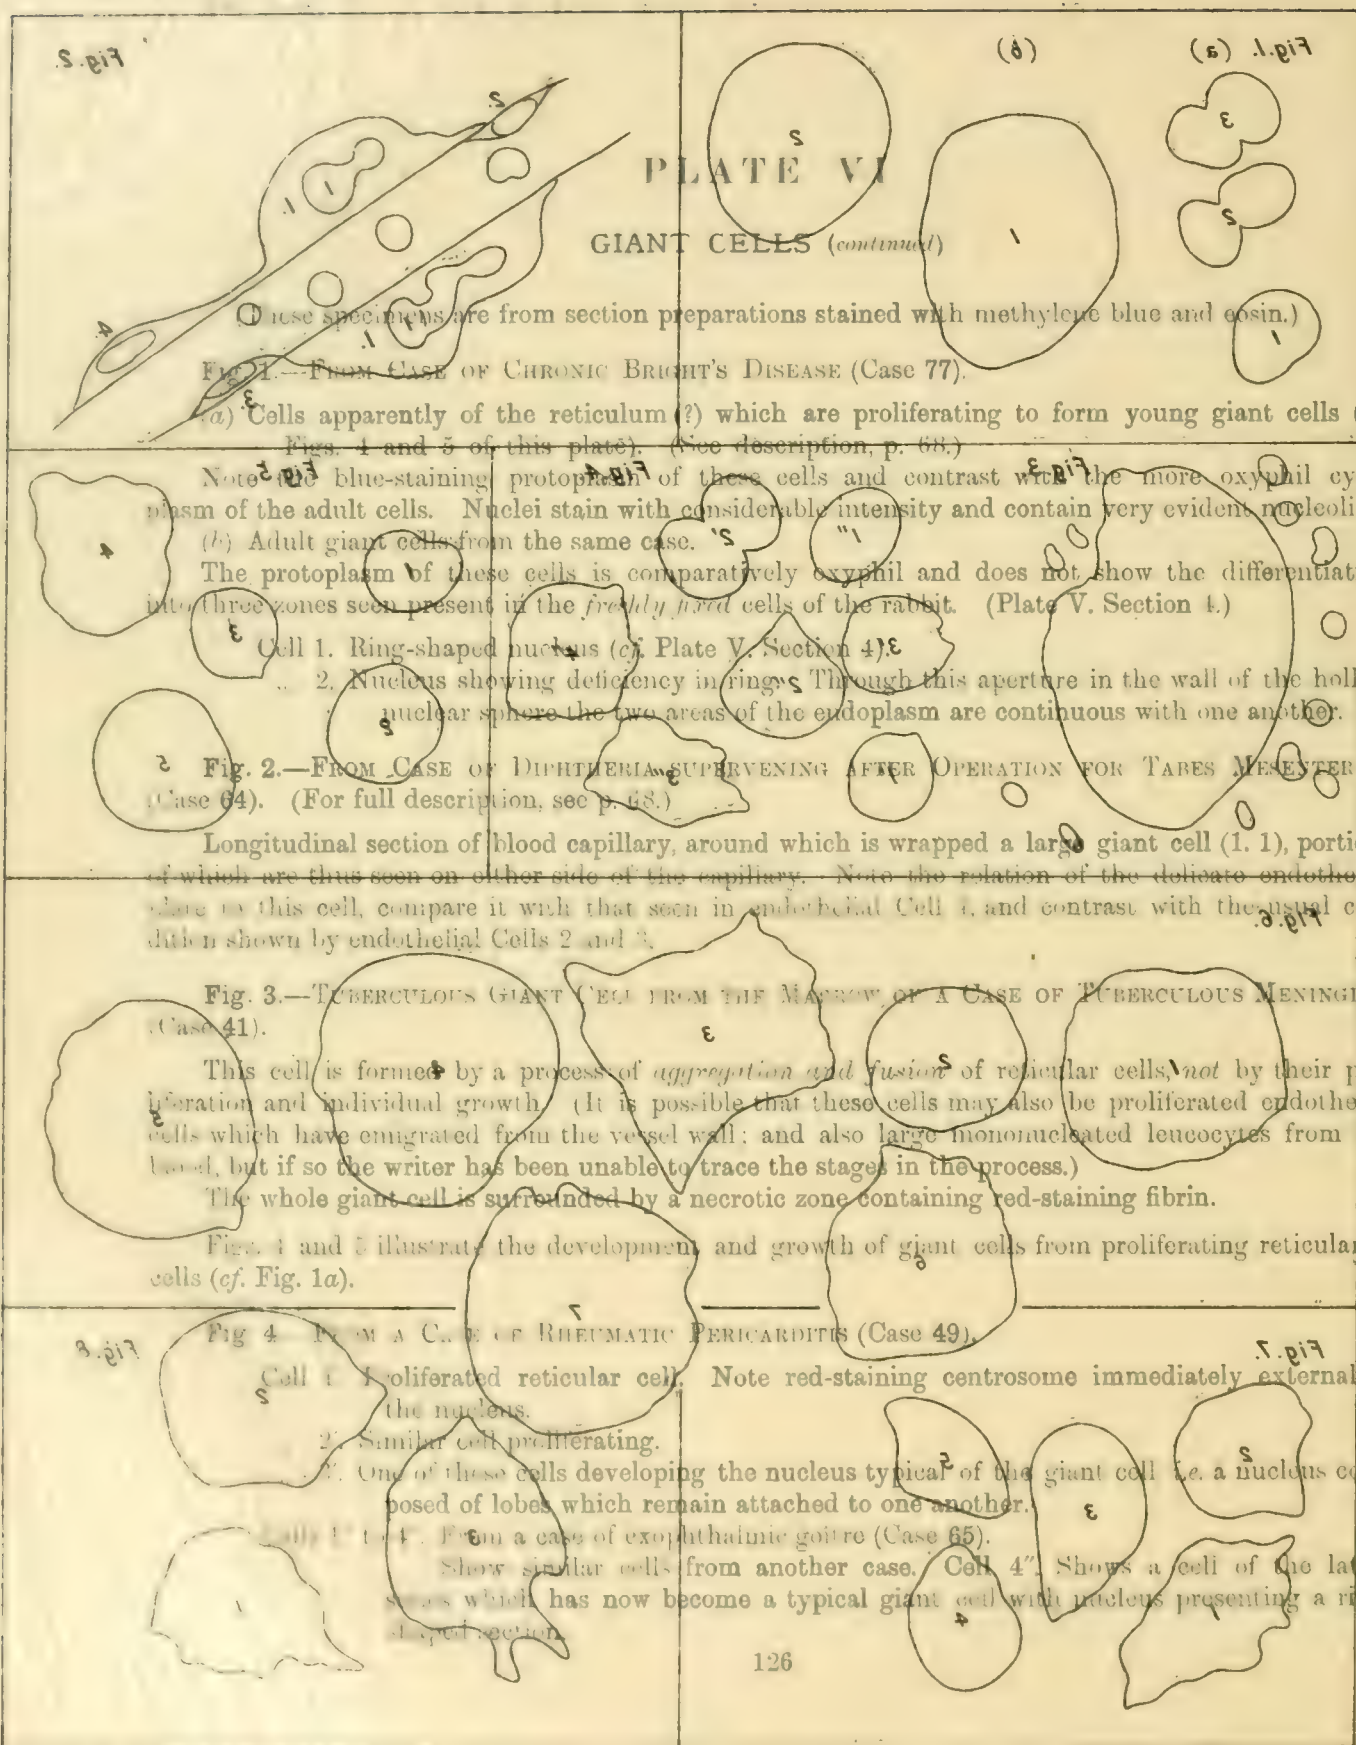 PLATE VI
GIANT CELLS (continued)
(These specimens are from section preparations stained with methylene blue and eosin.)
Fig. 1.—FROM CASE OF CHRONIC BRIGHT'S DISEASE (Case 77).
(a) Cells apparently of the reticulum (?) which are proliferating to form young giant cells (
Figs. 4 and 5 of this plate). (See description, p. 68.)
Note the blue-staining protoplasm of these cells and contrast with the more oxyphil cy
plasm of the adult cells. Nuclei stain with considerable intensity and contain very evident nucleoli
(b) Adult giant cells from the same case.
The protoplasm of these cells is comparatively oxyphil and does not show the differentiat
into three zones seen present in the freshly fixed cells of the rabbit. (Plate V. Section 4.)
Cell 1. Ring-shaped nucleus (cf. Plate V. Section 4).
,, 2. Nucleus showing deficiency in ring. Through this aperture in the wall of the holl
nuclear sphere the two areas of the endoplasm are continuous with one another.
Fig. 2.—FROM CASE OF DIPHTHERIA SUPERVENING AFTER OPERATION FOR TABES MESENTER
(Case 64). (For full description, see p. 68.)
Longitudinal section of blood capillary, around which is wrapped a large giant cell (1. 1), porti
of which are thus seen on either side of the capillary. Note the relation of the delicate endothe
plate to this cell, compare it with that seen in endothelial Cell 4, and contrast with the usual c
dition shown by endothelial Cells 2 and 3.
Fig. 3.—TUBERCULOUS GIANT CELL FROM THE MARROW OF A CASE OF TUBERCULOUS MENINGI
(Case 41).
This cell is formed by a process of aggregation and fusion of reticular cells, not by their p
liferation and individual growth. (It is possible that these cells may also be proliferated endothe
cells which have emigrated from the vessel wall; and also large mononucleated leucocytes from
blood, but if so the writer has been unable to trace the stages in the process.)
The whole giant cell is surrounded by a necrotic zone containing red-staining fibrin.
Figs. 4 and 5 illustrate the development and growth of giant cells from proliferating reticular
cells (cf. Fig. 1a).
Fig. 4. FROM A CASE OF RHEUMATIC PERICARDITIS (Case 49).
Cell 1. Proliferated reticular cell. Note red-staining centrosome immediately external
the nucleus.
2'. Similar cell proliferating.
One of these cells developing the nucleus typical of the giant cell i.e. a nucleus co
posed of lobes which remain attached to one another.
Cells 1'' to 4''. From a case of exophthalmic goitre (Case 65).
Show similar cells from another case. Cell 4''. Shows a cell of the lat
series which has now become a typical giant cell with nucleus presenting a ri
shaped section.
126
Fig. 1. (a)
(b)
Fig. 2.
Fig. 3.
Fig. 4.
Fig. 5.
Fig. 6.
Fig. 7.
Fig. 8.